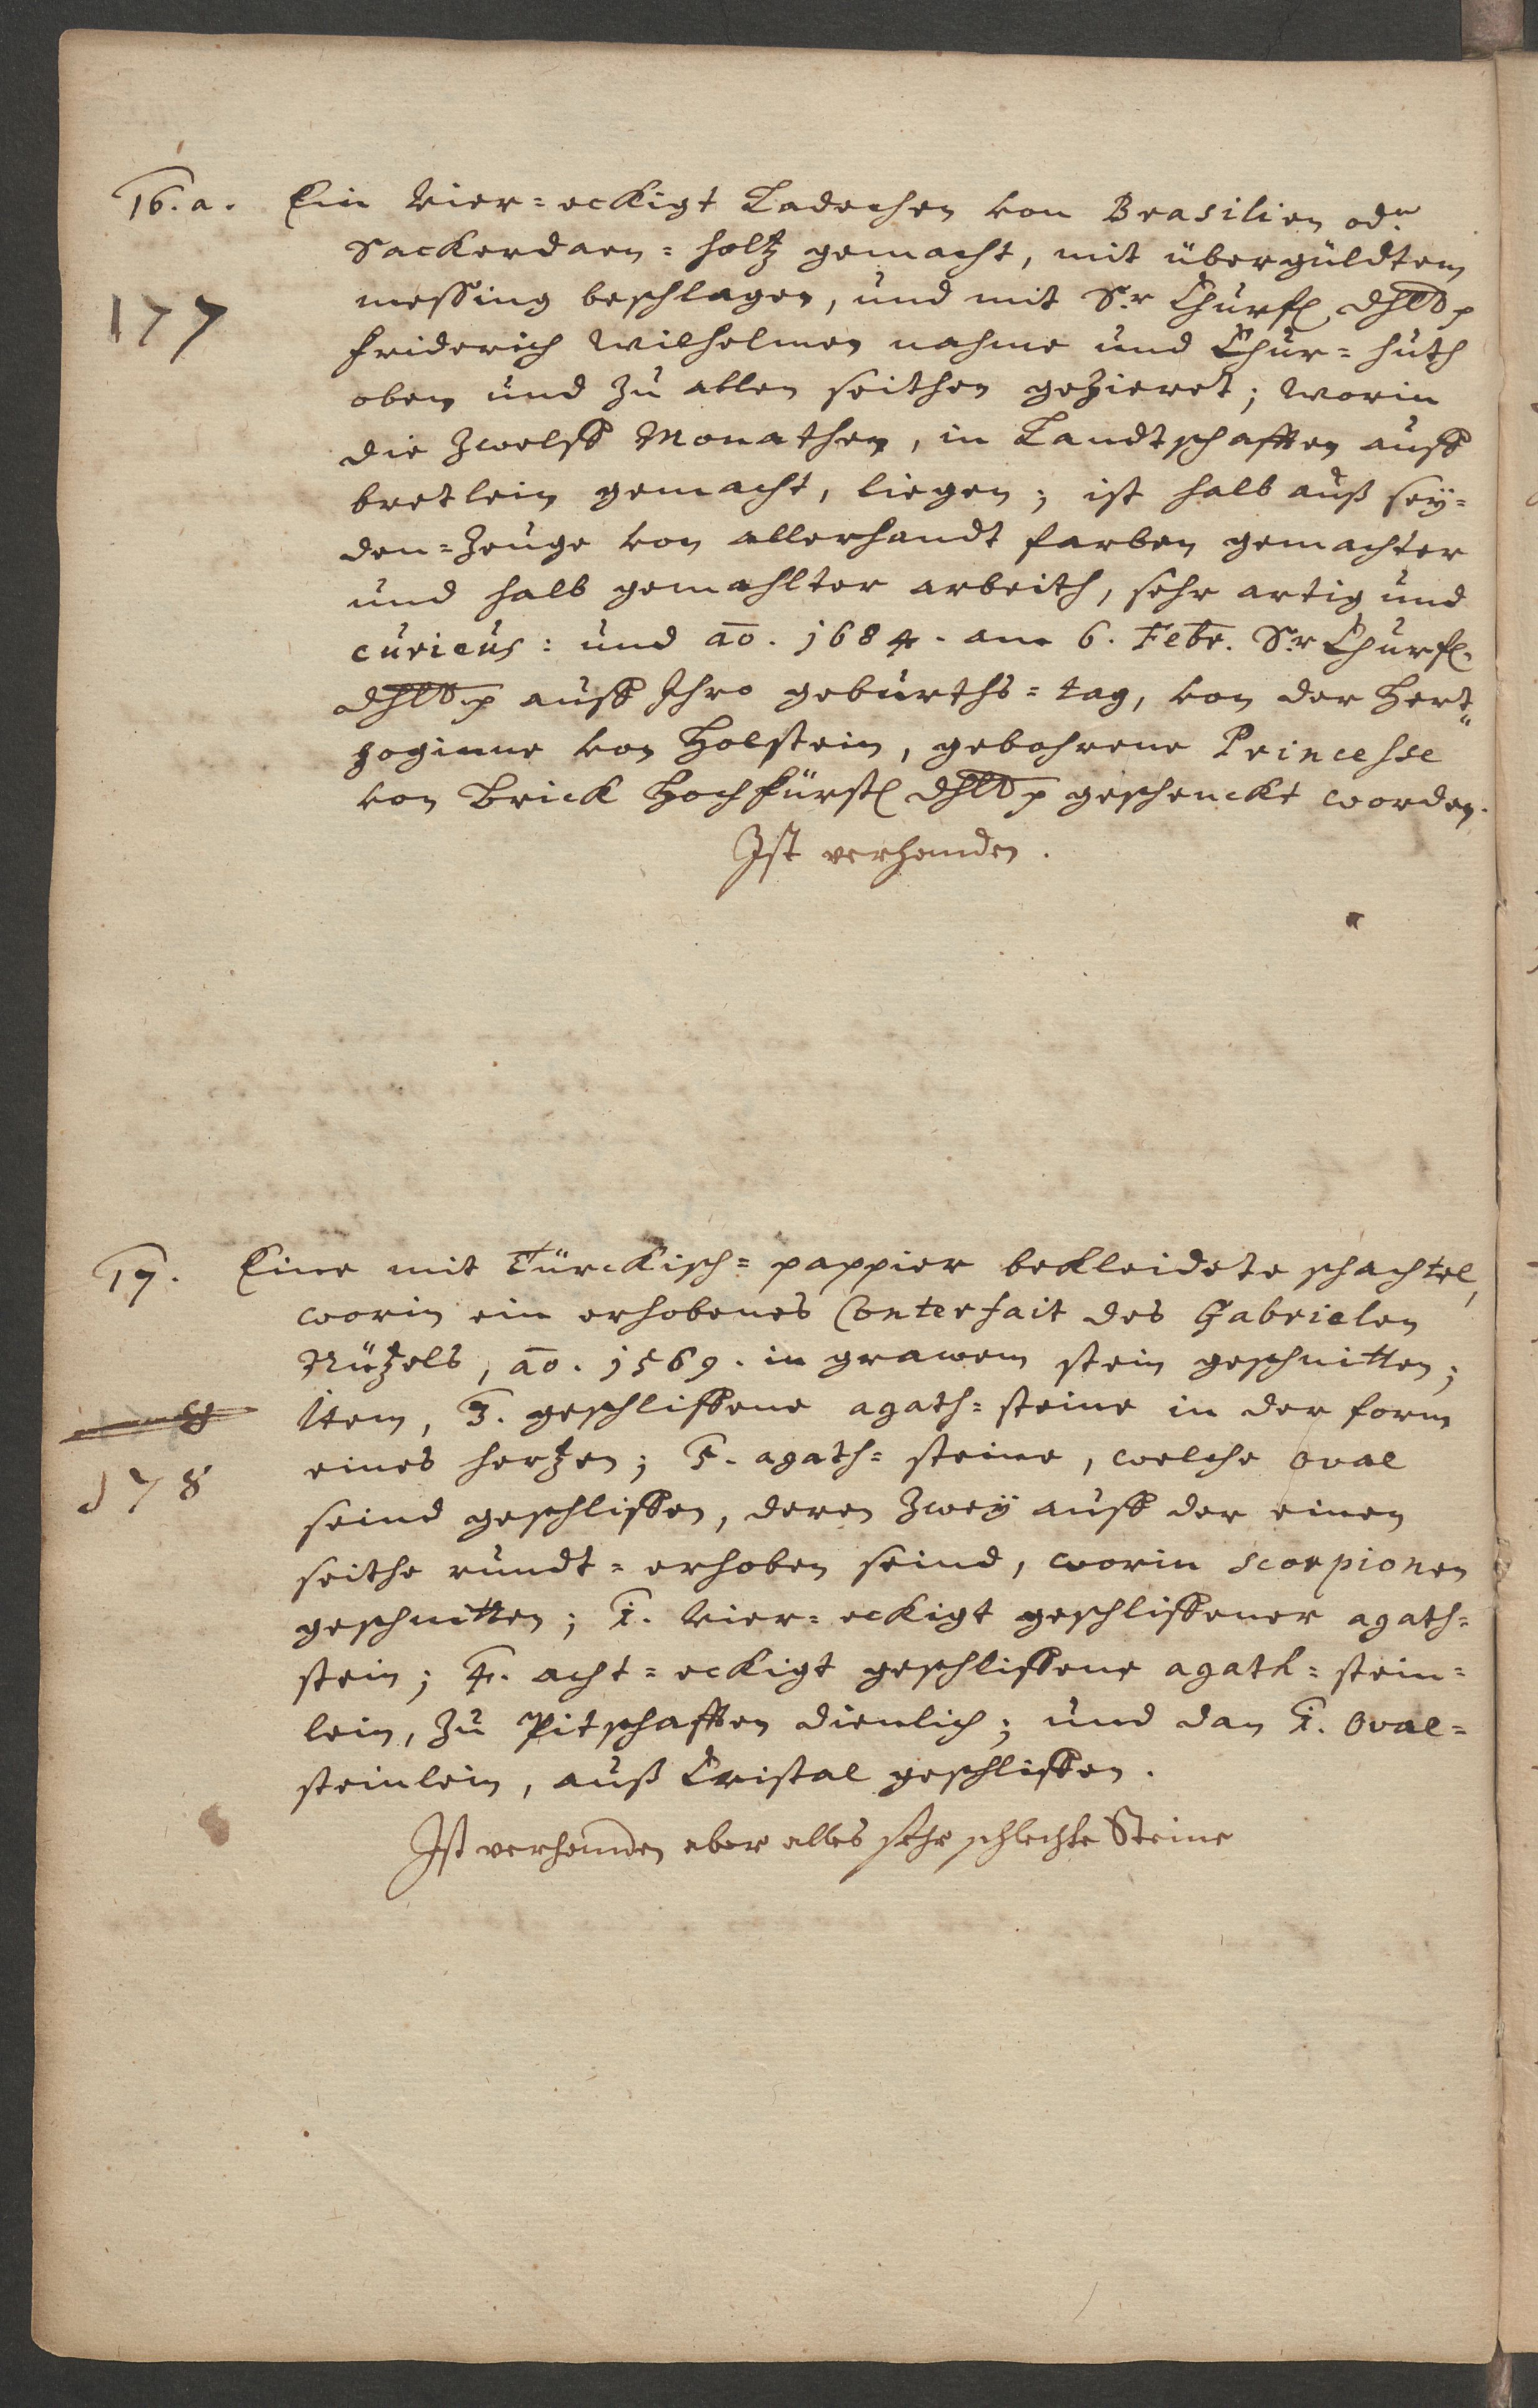 16. a. Ein Vier=eckigt Ladechen von Brasilien od.r
Sackerdaen=holtz gemacht, mit übergüldtem
177 messing beschlagen, und mit Sr Churfl. dhltt
friderich Wilhelmen nahme und Chur=huth
oben und zu allen seithen gezieret; worin
die Zwelff Monathen, in Landtschafften auff
bretlein gemacht, liegen; ist halb auß sey=
den=Zeuge von allerhandt farben gemachter
und halb gemahlter arbeith, sehr artig und
curieus: und ao. 1684. am 6. Febr. Sr Churfl.
dhltt auff Ihro geburths=tag, von der Hert"
zoginne von Holstein, gebohrene Princesse
von Brick Hochfürstl dhltt geschenckt worden.
Ist verhanden.
17. Eine mit Türckisch=pappier bekleidete schachtel,
worin ein erhobenes Conterfait des Gabrielen
Nützels, ao. 1569. in grawem stein geschnitten;
Item, 3. geschliffene agath=steine in der form
178 eines hertzen; 5. agath=steine, welche oval
seind geschliffen, deren Zwey auff der einen
seithe rundt=erhoben seind, worin scorpionen
geschnitten; 1. Vier=eckigt geschliffener agath=
stein; 4. acht=eckigt geschliffene agath=stein=
lein, zu Pitschafften dienlich; und dan 1. Oval=
steinlein, auß Cristal geschliffen.
Ist verhanden aber alles sehr schlechte Steine